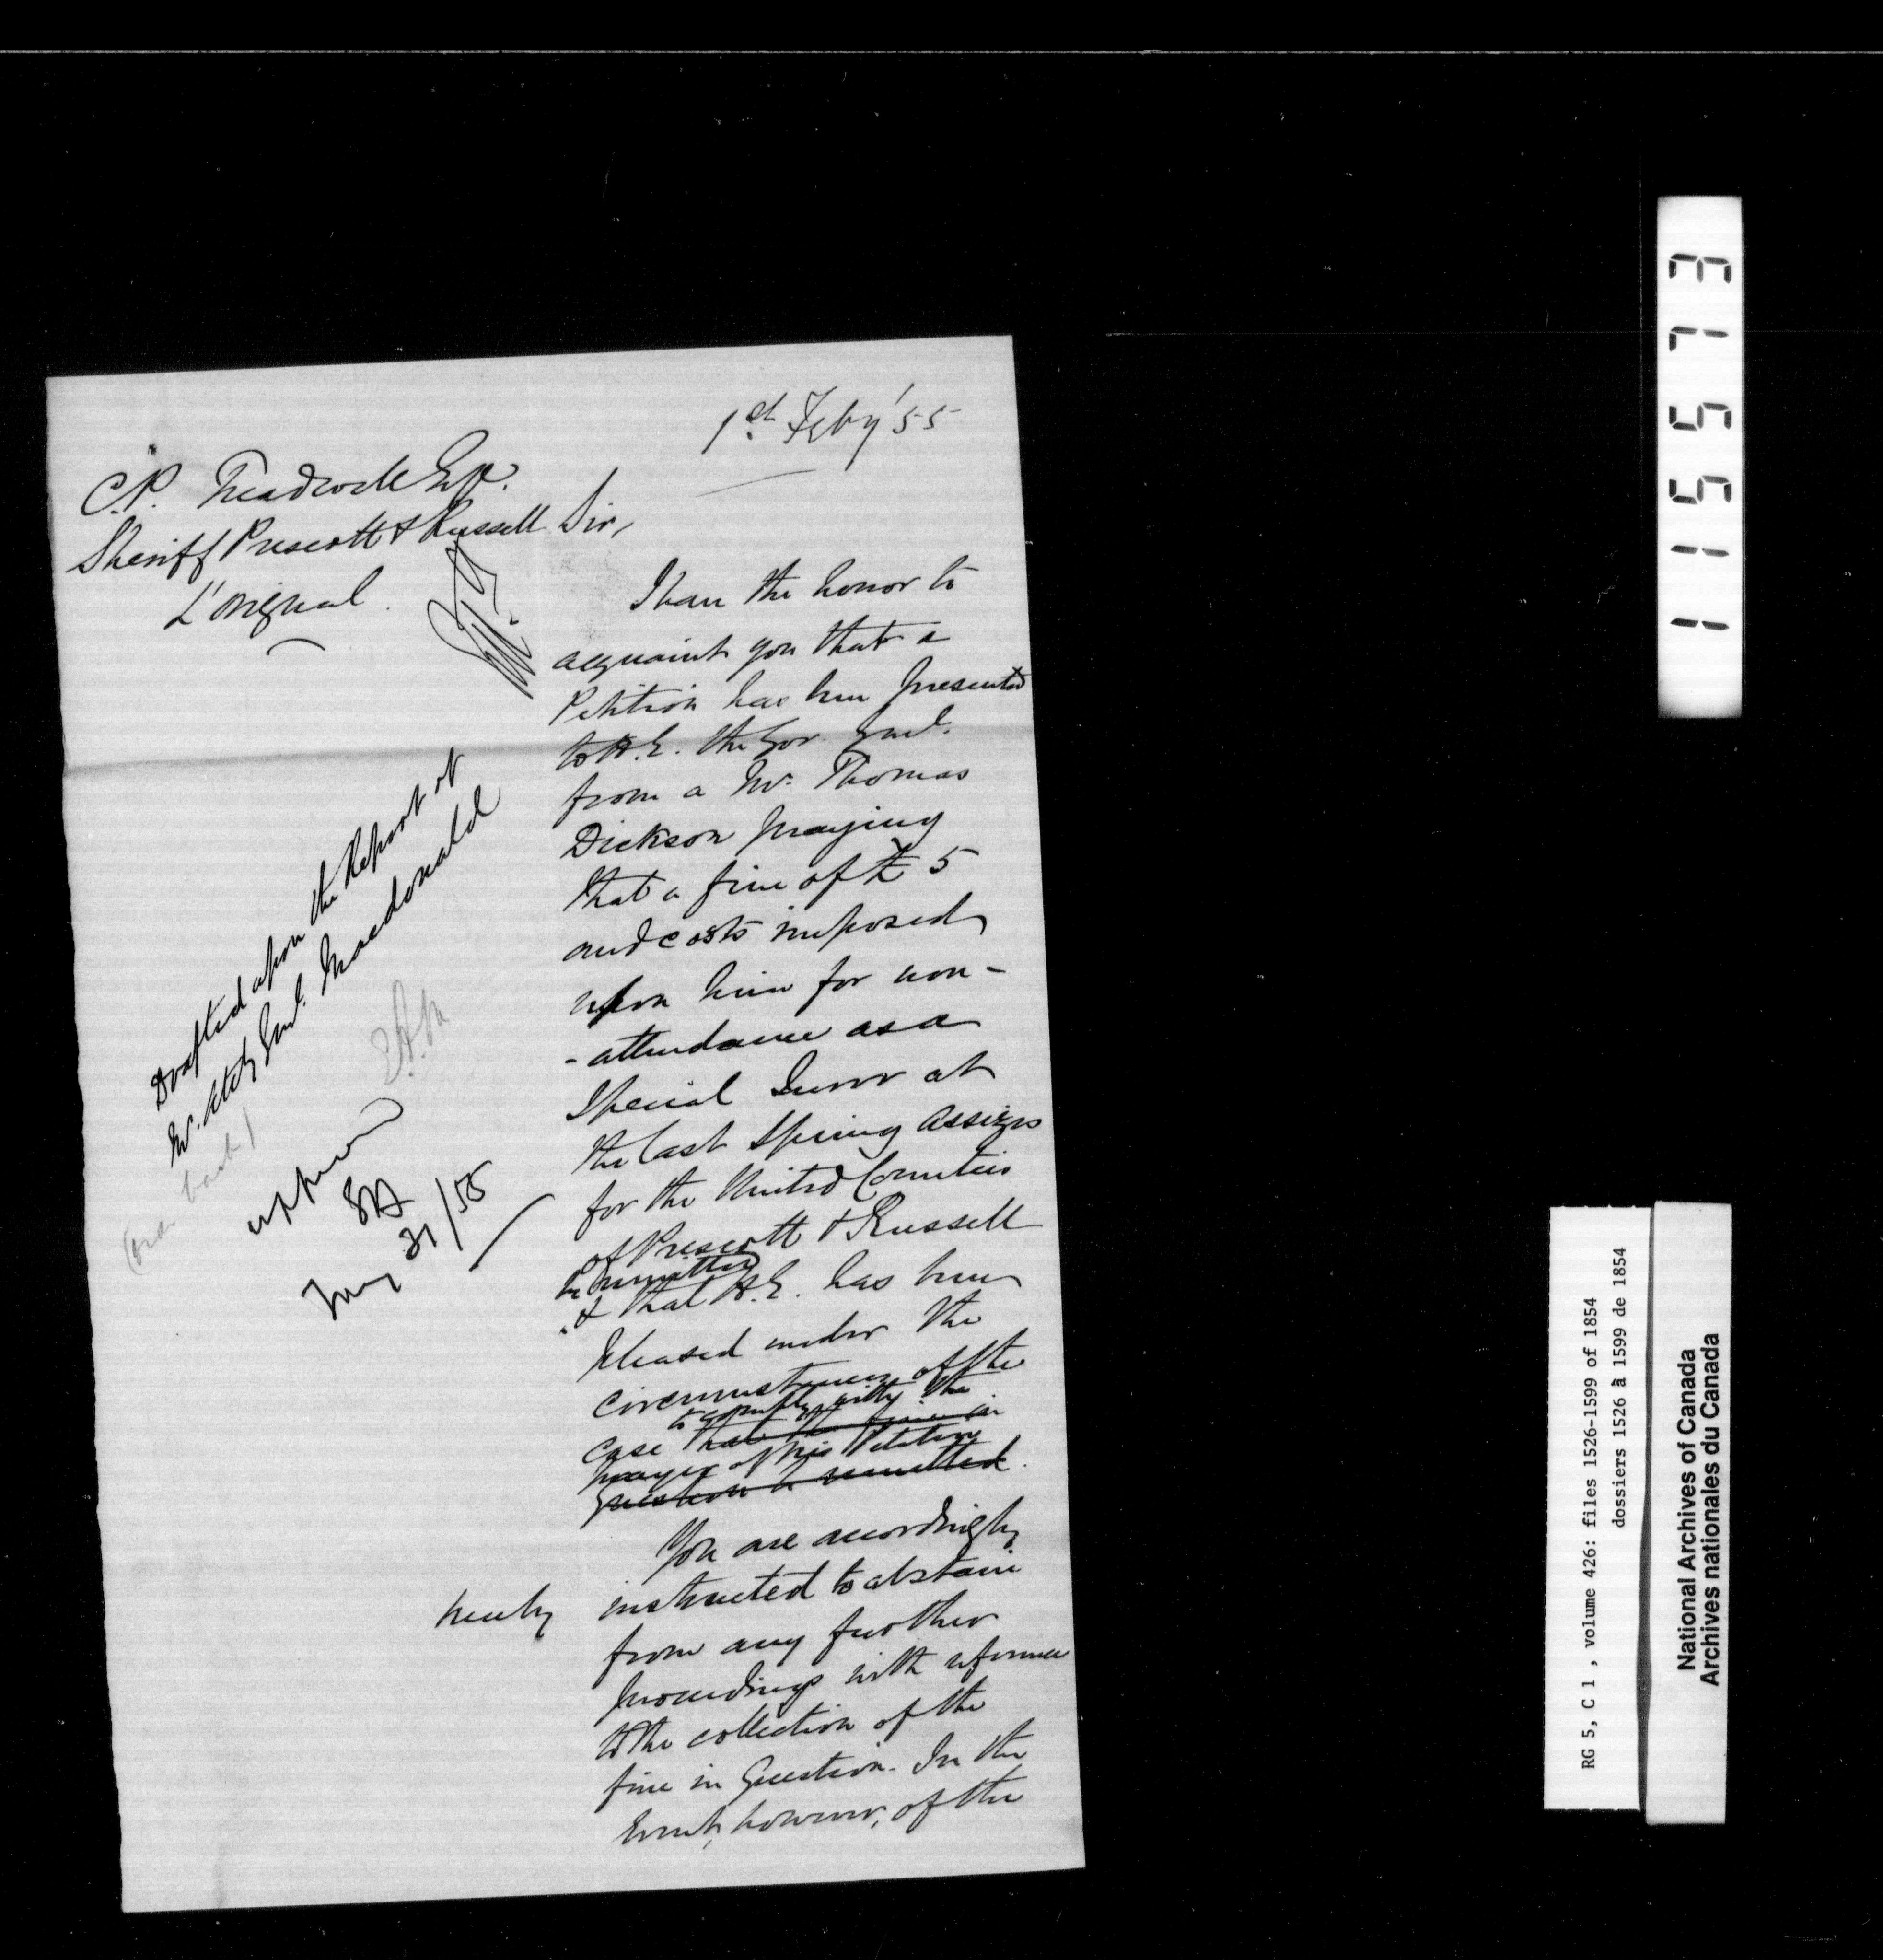 1st Feby '55
C.P. Treadwell Esqr.
Sheriff Prescott & Russell
L'Orignal
Sir,
I have the honor to
acquaint you that a
Petition has been presented
to H.E. the Gov. Genl.
from a Mr. Thomas
Dickson praying
that a fine of £5
and costs imposed
upon him for non-
-attendance as a
Special Juror at
the last Spring Assizes
for the United Counties
of Prescott & Russell
be remitted
& that H.E. has been
pleased under the
circumstances of the
to comply with the
case that the fine in
prayer of his Petition
Question be remitted.
You are accordingly
hereby
instructed to abstain
from any further
proceedings with reference
to the collection of the
fine in Question. In the
Event, however, of the
Drafted upon the Report of
Mr. Atty Genl. Macdonald
J.A.M
back)
approved
Jany 31/55
115573
RG 5, C 1 , volume 426: files 1526-1599 of 1854
dossiers 1526 à 1599 de 1854
National Archives of Canada
Archives nationales du Canada